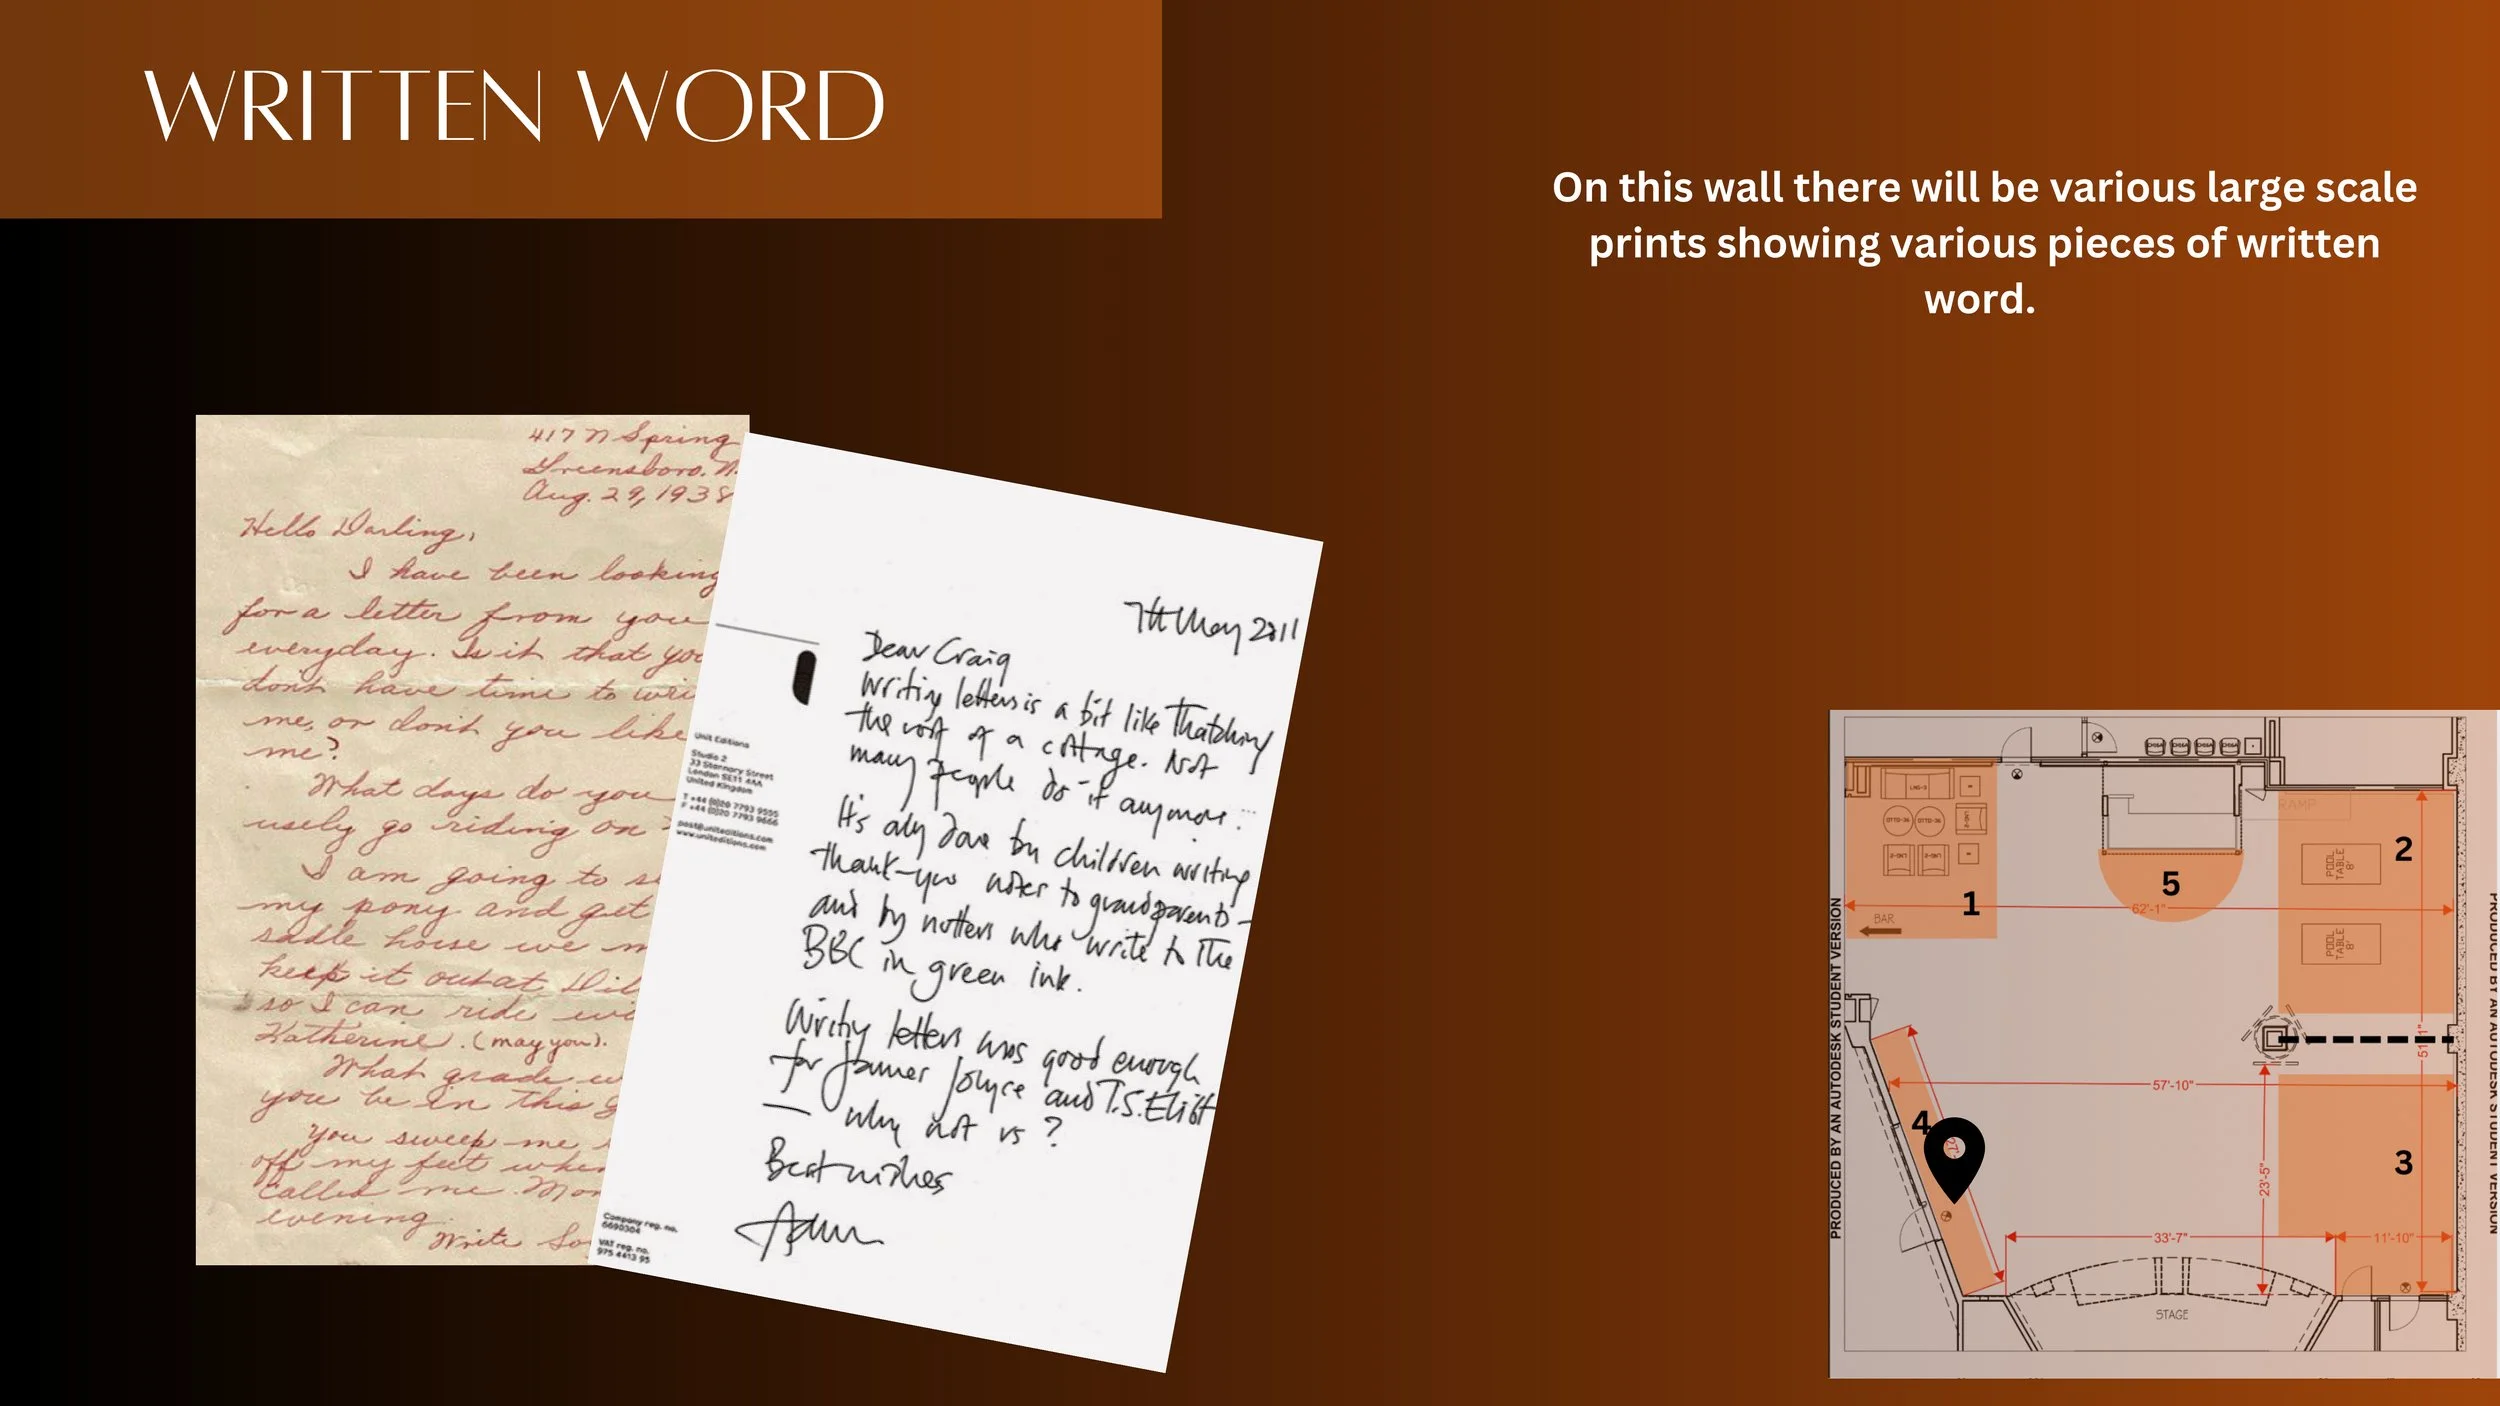 WRITTEN WORD
On this wall there will be various large scale
prints showing various pieces of written
word.
417 N Spring
Greensboro. N.
Aug. 29, 1938
Hello Darling,
I have been looking
for a letter from you
everyday. Is it that you
don't have time to wri
me, or don't you like
me?
What days do you
usely go riding on?
I am going to s
my pony and get
sadle horse we m
keep it out at Dil
so I can ride wi
Katherine. (may you).
What grade w
you be in this
You sweep me
off my feet when
called me. Mon
evening.
Write So
7th May 2011
Dear Craig
Writing letters is a bit like thatching
the roof of a cottage. Not
many people do it anymore.
It's only done by children writing
thank-you notes to grandparents -
and by nutters who write to the
BBC in green ink.
Writing letters was good enough
for James Joyce and T.S. Eliot
— why not us?
Best wishes
Unit Editions
Studio 2
33 Stannary Street
London SE11 4AA
United Kingdom
T +44 (0)20 7793 9555
F +44 (0)20 7793 9666
post@uniteditions.com
www.uniteditions.com
Company reg. no.
6690304
VAT reg. no.
975 4413 95
PRODUCED BY AN AUTODESK STUDENT VERSION
RAMP
LNG-3
OTTO-36
LNG-2
LNG-2
LNG-2
1
BAR
5
62'-1"
2
POOL TABLE 8'
POOL TABLE 8'
51'-1"
57'-10"
4
3
23'-5"
33'-7"
11'-10"
STAGE
PRODUCED BY AN AUTODESK STUDENT VERSION